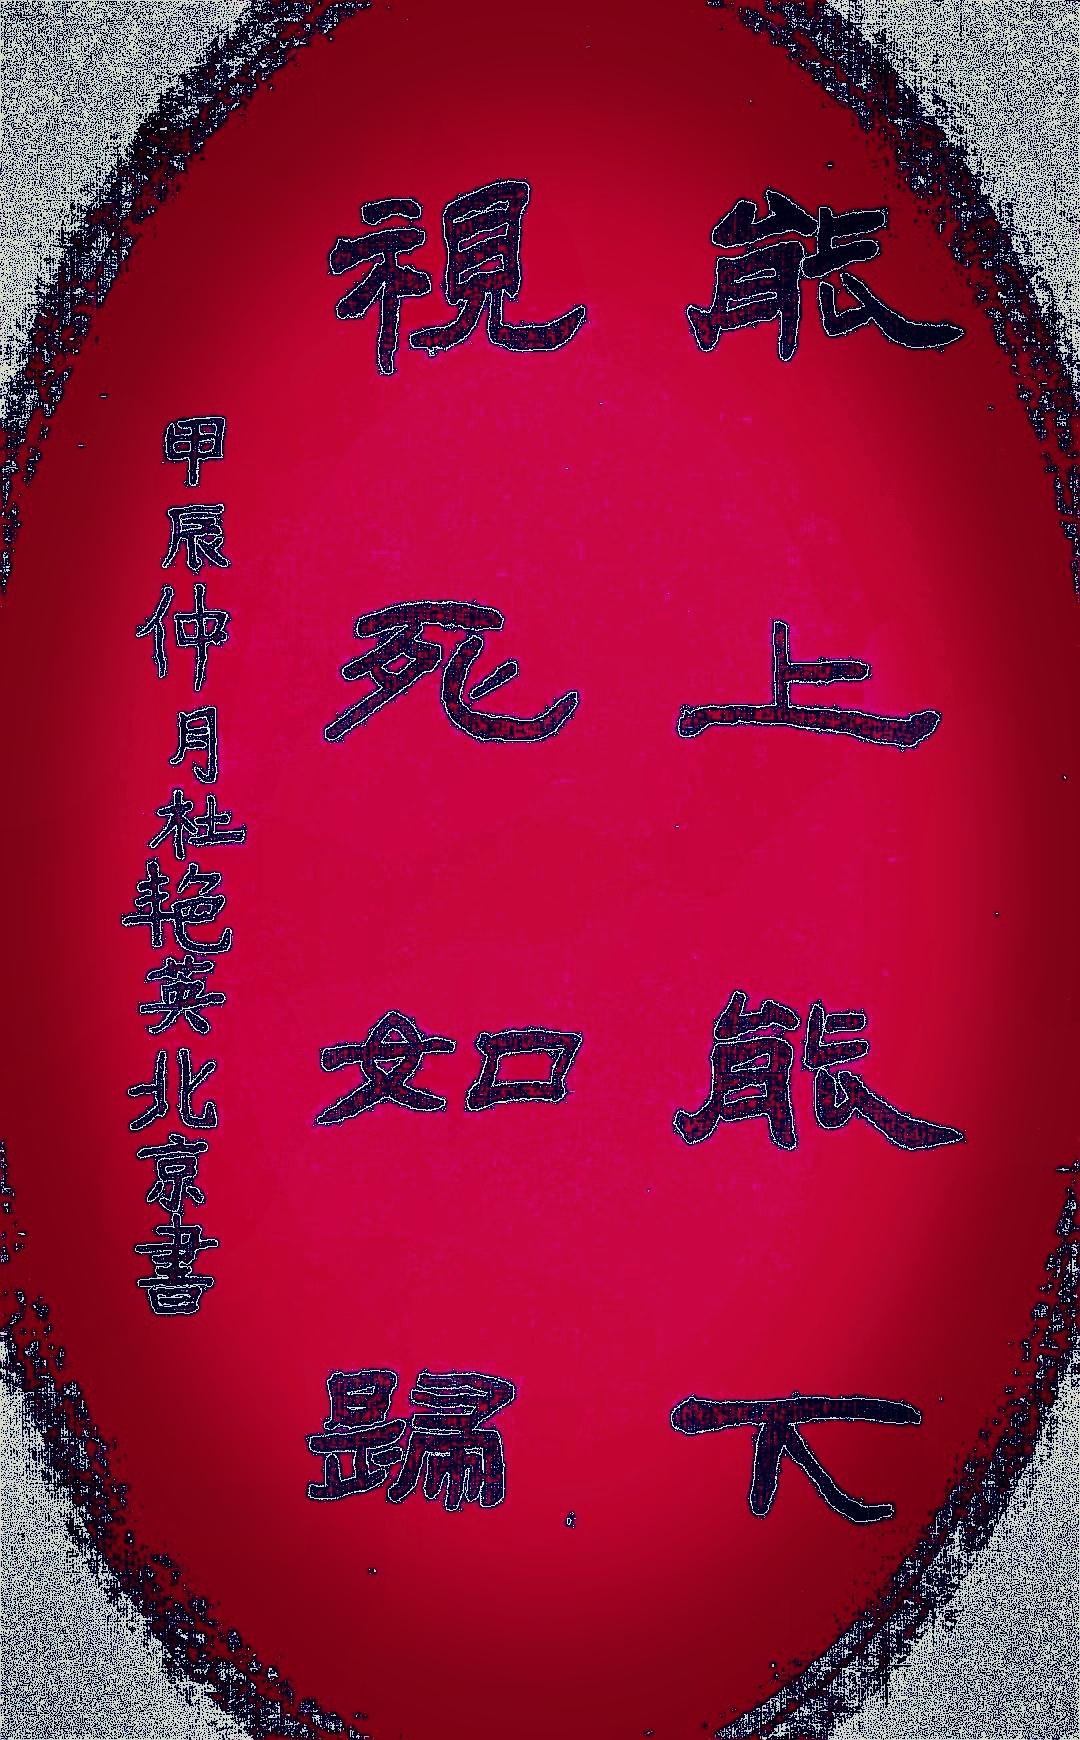 能上能下
視死如歸
甲辰仲月杜艳英北京書